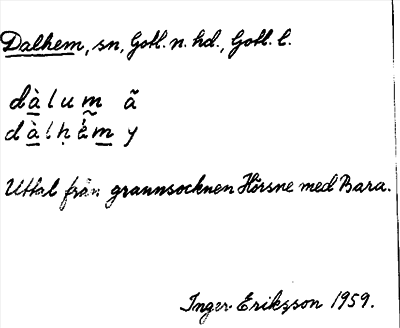 Dalhem, sn, Gotl. n. hd., Gotl. l.
dàlum ã
dàlḥå̃m y
Uttal från grannsocknen Hörsne med Bara.
Inger Eriksson 1959.